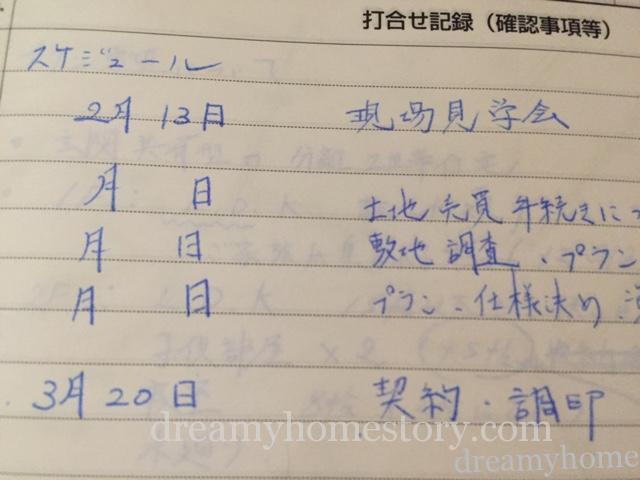 打合せ記録（確認事項等）
スケジュール
2月 13日 現場見学会
月 日 土地売買手続きに
月 日 敷地調査、プラン
月 日 プラン、仕様決め
3月 20日 契約・調印
dreamyhomestory.com
dreamyhome